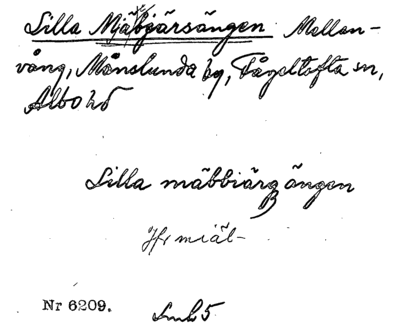 Lilla Mjäbjärsängen Mellan-
vång, Månslunda by, Fågeltofta sn,
Albo hd
Lilla mäbbiärgängen
Hr miäl-
Nr 6209.